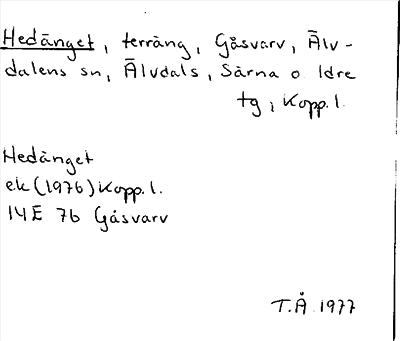 Hedänget, terräng, Gåsvarv, Älv-
dalens sn, Älvdals, Särna o Idre
tg, Kopp.l.
Hedänget
ek (1976) Kopp.l.
14E 7b Gåsvarv
T.Å. 1977